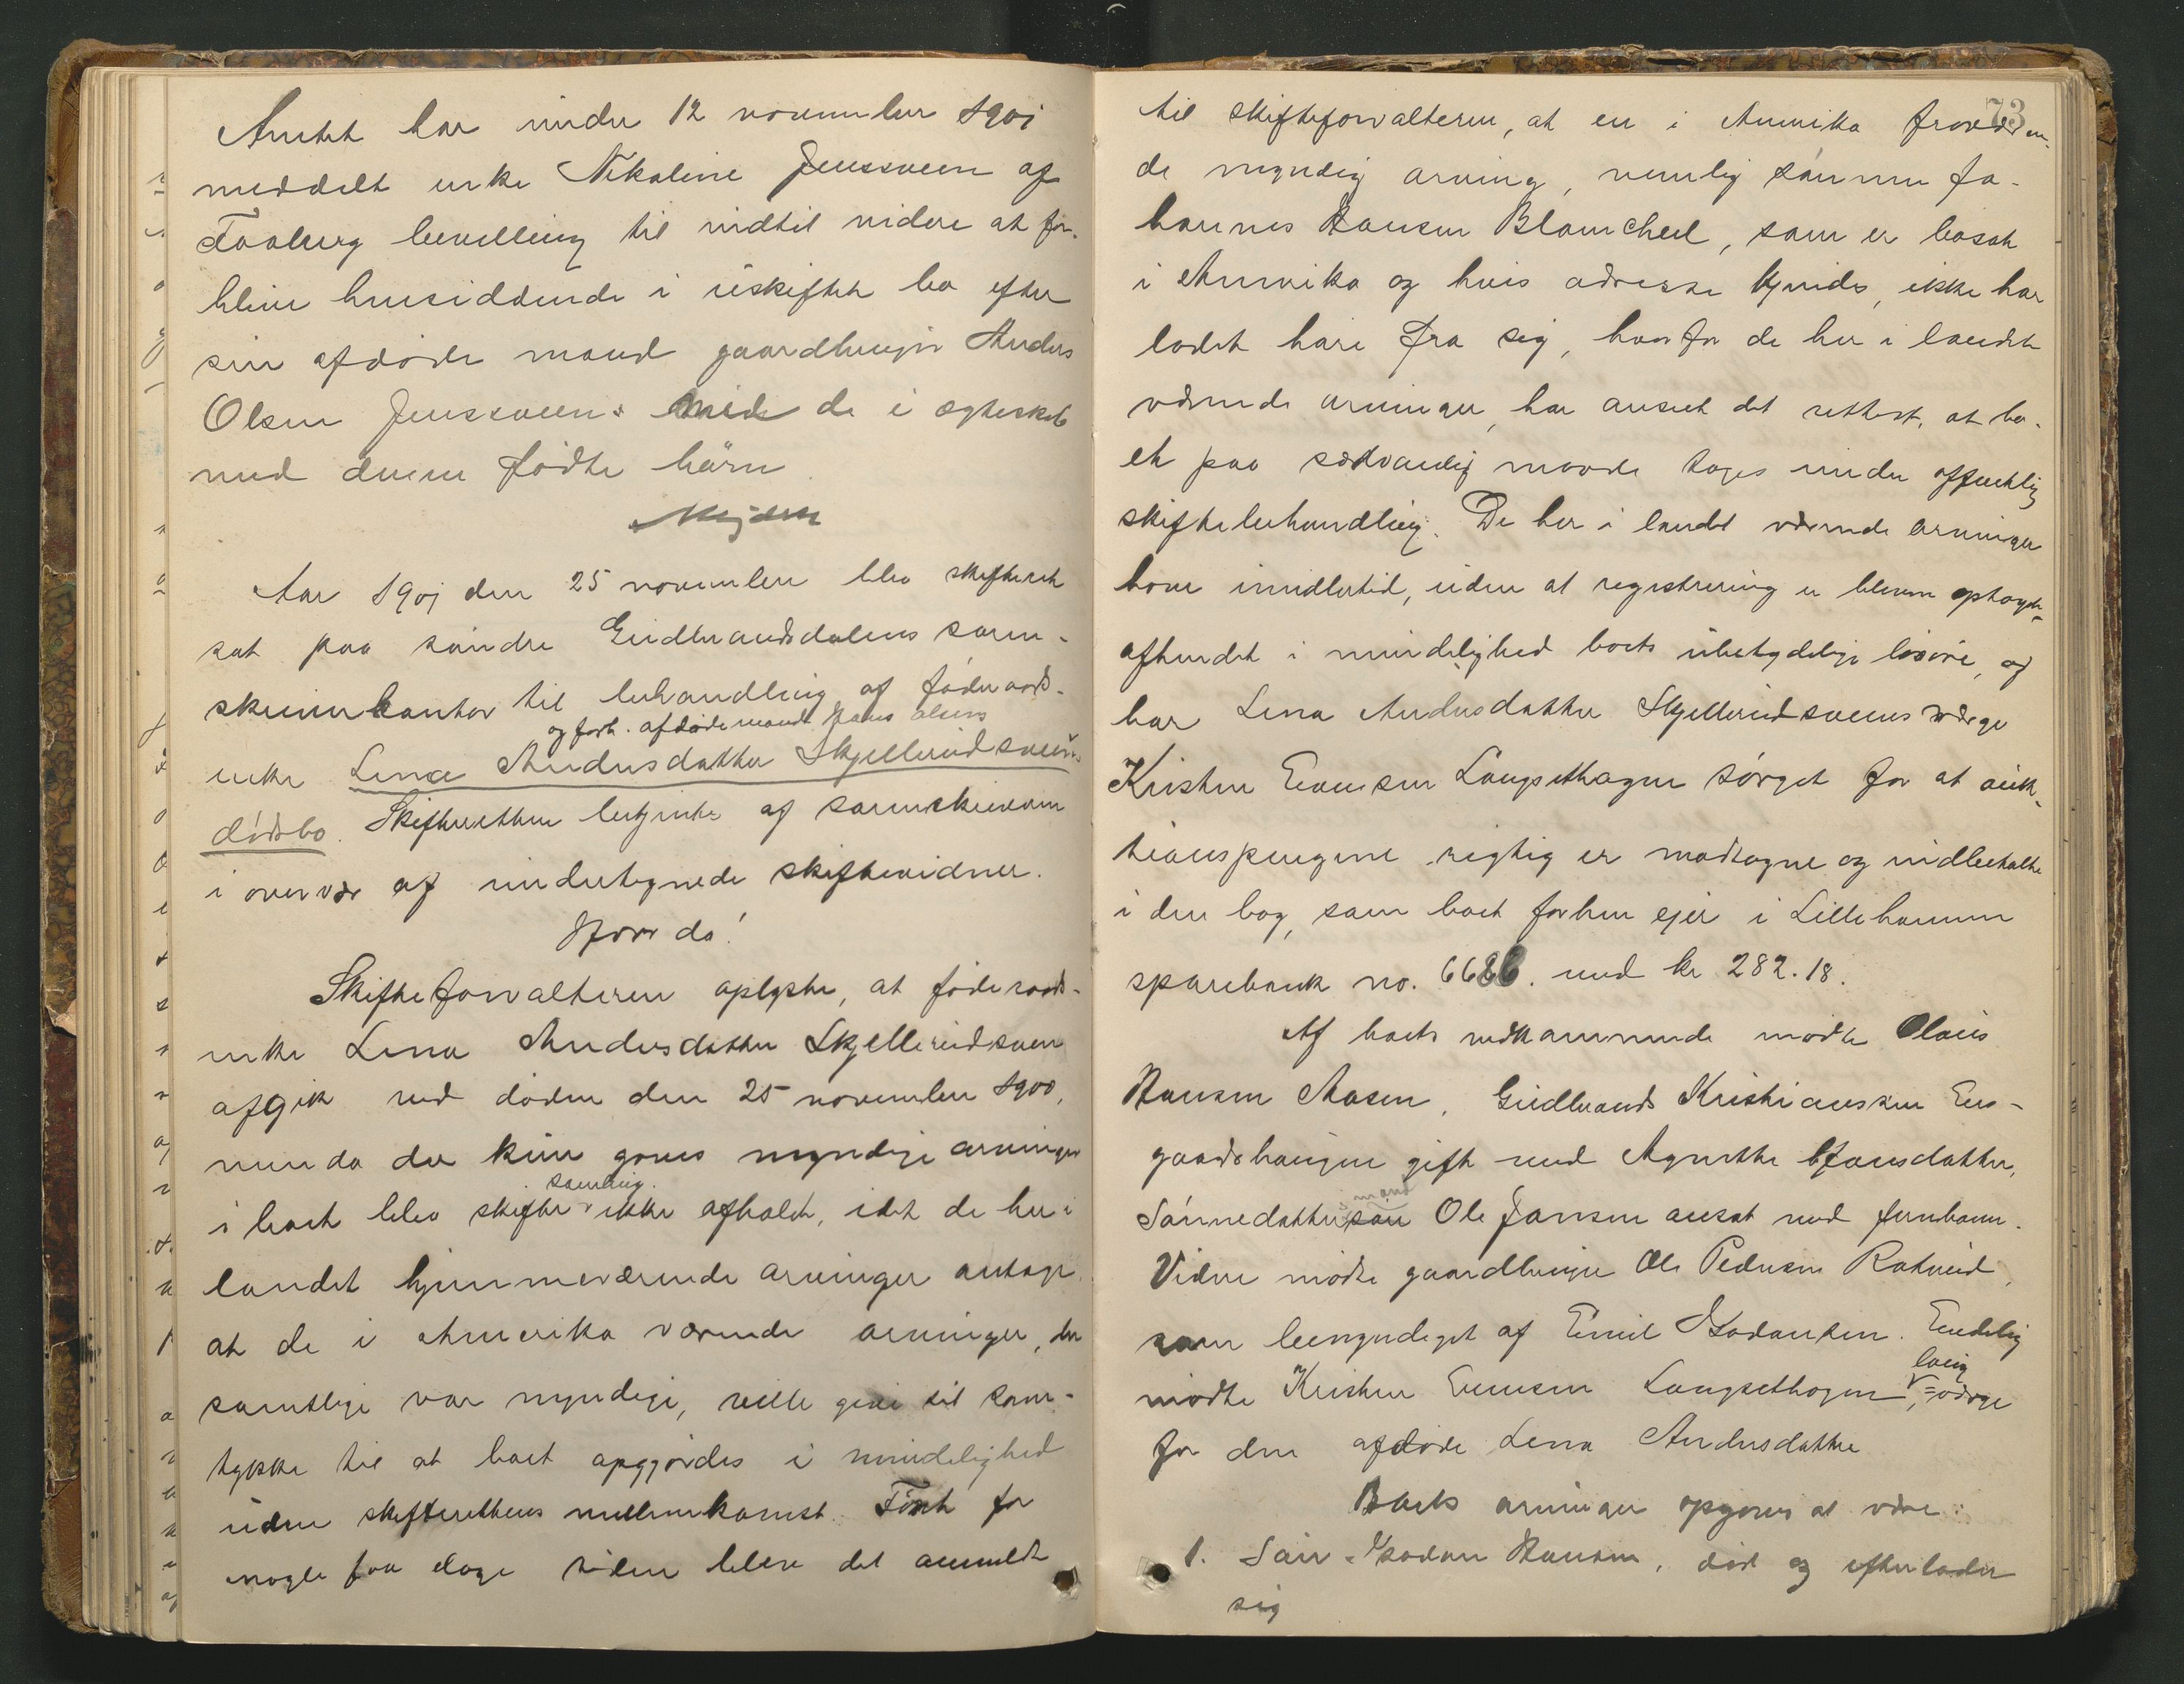 Amtet har under 12 november 1901
meddelt enke Nikoline Jenssveen af
Faaberg bevilling til indtil videre at for-
blive hensiddende i uskiftet bo efter
sin afdøde mand gaardbruger Anders
Olsen Jenssveen med de i ægteskab
med denne fødte børn
Aar 1901 den 25 november blev skifteret
sat paa søndre Gudbrandsdalens soren-
skriverkontor til behandling af føderaads-
og forh. afdøde mand Hans Olsens
enke Lena Andersdatter Skjellerudsveens
dødsbo. Skifteretten betjentes af sorenskriveren
i overvær af undertegnede skiftevidner.
Hvorda!
Skifteforvalteren oplyste, at føderaads-
enke Lena Andersdatter Skjellerudsveen
afgik ved døden den 25 november 1900,
men da der kun gaves myndige arvinger
samling
i boet blev skifte ikke afholdt, idet de her i
landet hjemmeværende arvinger antog
at de i Amerika værende arvinger, der
samtlige var myndige, vilde give sit sam-
tykke til at boet opgjordes i mindelighed
uden skifterettens mellemkomst. Først for
nogle faa dage siden blev det anmeldt
73
til skifteforvalteren, at en i Amerika fraværen-
de myndig arving, nemlig sønnen Jo-
hannes Hansen Blomcheel, som er bosat
i Amerika og hvis adresse kjendes, ikke har
ladet høre fra sig, hvorfor de her i landet
værende arvinger, har anseet det rettest, at bo-
et paa sædvanlig maade tages under offentlig
skiftebehandling. De her i landet værende arvinger
have imidlertid, uden at registrering er bleven optaget,
afhændet i mindelighed boets ubetydelige løsøre, og
har Lena Andersdatter Skjellerudsveens værge
Kristen Evensen Langsethagen sørget for at auk-
tionspengene rigtig er modtagne og indbetalte
i den bog, som boet forhen ejer i Lillehammer
sparebank no. 6686. med kr 282.18.
Af boets vedkommende mødte Olaus
Hansen Mosen, Gudbrands Kristiansen En-
gaardshaugen gift med Agnethe Hansdatter,
mand
Sønnedatters Ole Jansen ansat ved jernbanen.
Videre mødte gaardbruger Ole Pedersen Roterud,
som bemyndiget af Emil Hovansen. Endelig
laug
mødte Kristen Evensen Langsethagen, =værge
for den afdøde Lena Andersdatter
Boets arvinger opgives at være:
1. Søn Hansen, død og efterlader
sig